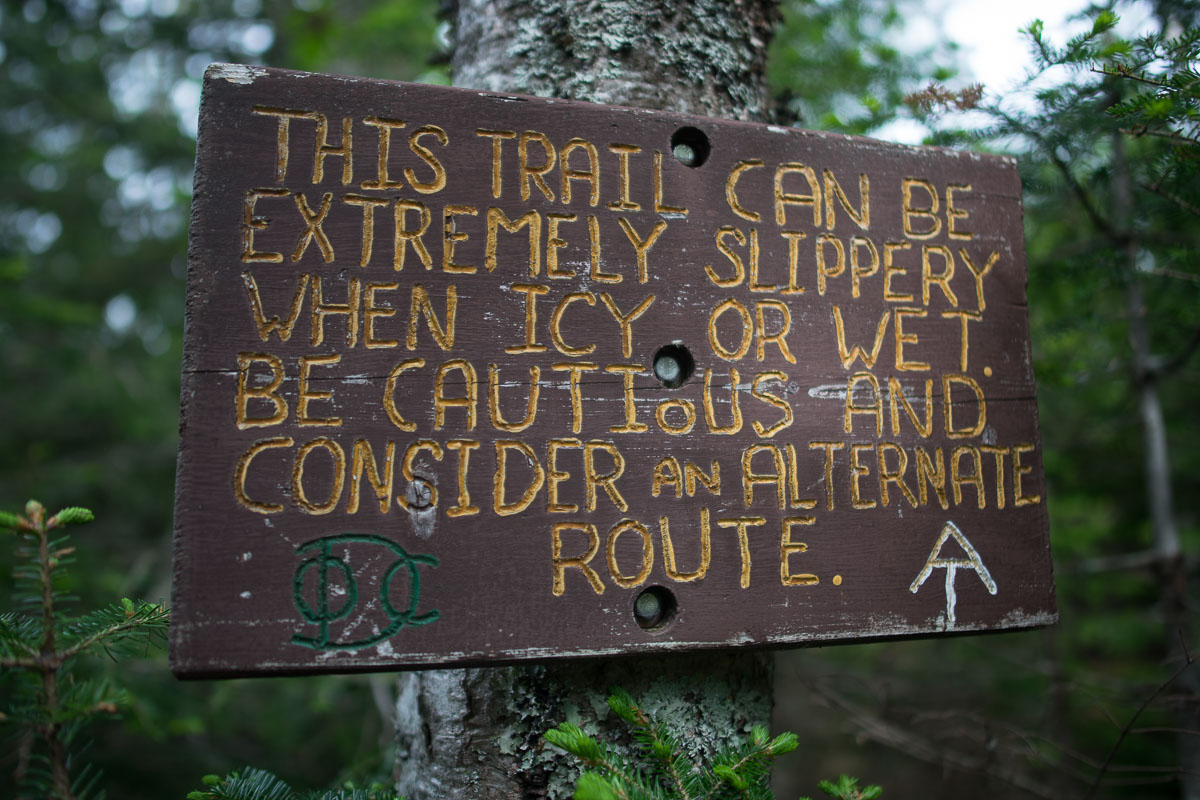 THIS TRAIL CAN BE
EXTREMELY SLIPPERY
WHEN ICY OR WET.
BE CAUTIOUS AND
CONSIDER AN ALTERNATE
ROUTE.